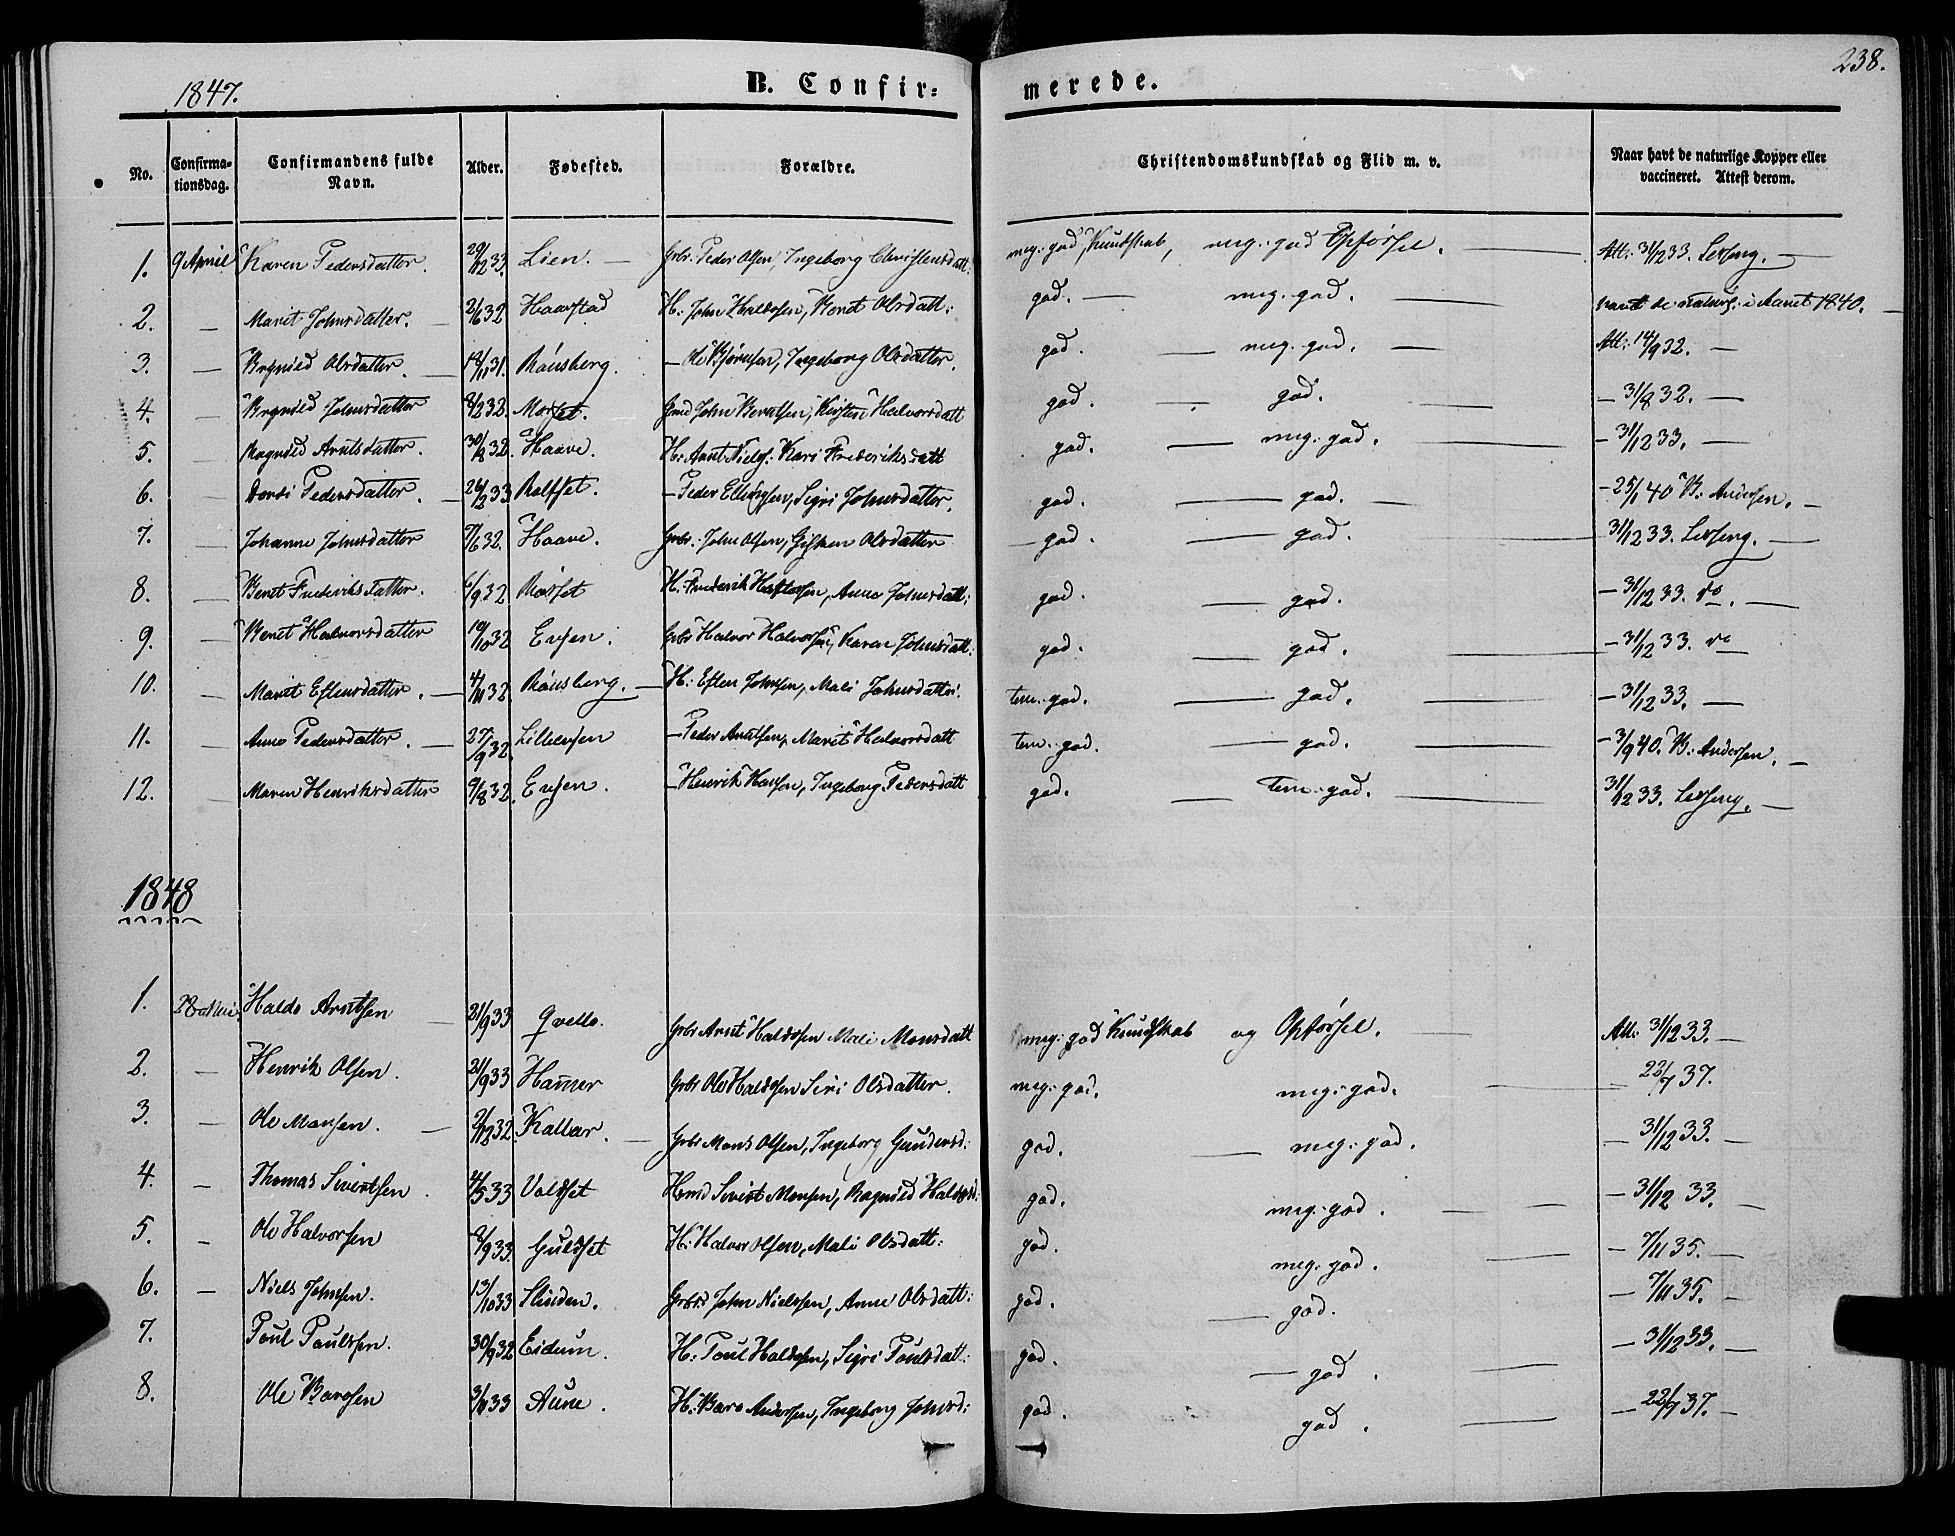 1847.
B. Confir=
merede.
238.
No. Confirma-tionsdag. Confirmandens fulde Navn. Alder. Fødested. Forældre. Christendomskundskab og Flid m. v. Naar havt de naturlige Kopper eller vaccineret. Attest derom.
1. 9 April Karen Pedersdatter. 29/12 33. Lien. — Grbr. Peder Olsen, Ingeborg Christensdatt: meg: god Kundskab, meg: god Opførsel. — Att: 31/12 33. Lessing. —
2. — Marit Johnsdatter. — 2/6 32 Haarstad H: John Haldosen, Beret Olsdatt: god. — meg. god. — havt de naturl: i Aaret 1840. —
3. — Brynild Olsdatter. — 18/11 31. Rønsberg. — Ole Bjørnsen, Ingeborg Olsdatter. god. — meg. god. — Att: 14/9 32. —
4. — Brynild Johnsdatter 8/2 32. Morset. John Berntsen, Kirsten Halvorsdatt god. — god. — — 31/8 32. —
5. Magnild Arntsdatter. 30/8 32. Haave. H: Arnt Niels: Kari Frederiksdatt god. — meg: god. — — 31/12 33. —
6. — Dordi Pedersdatter. — 26/2 33 Rolfset. — Peder Ellingsen, Sigri Johnsdatter. god. — god. — — 25/1 40 B: Andersen. —
7. — Johanne Johnsdatter 7/6 32. Haave. Grbr: John Olsen, Gisken Olsdatter — god. — god. — 31/12 33. Lessing. —
8. — Beret Frederiksdatter. 6/9 32 Rosset H: Frederik Haldosen, Anne Johnsdatt: god. — god. — 31/12 33. do. —
9. — Beret Halvorsdatter 19/10 32 Evjen. Grbr Halvor Halvorsen, Karen Johnsdatt: god. — god. — — 31/12 33. do
10. — Marit Estensdatter. — 4/11 32. Rønsberg. — H: Esten Johnsen, Mali Johnsdatter. tem: god. — god. — — 31/12 33. —
11. — Anne Pedersdatter. — 27/9 32. Lilleevjen — Peder Arntsen, Marit Halvorsdatt tem: god. — god. — — 3/9 40. B: Andersen. —
12. — Maren Henriksdatter 9/8 32. Evjen. — Henrik Hansen, Ingeborg Pedersdatt god. — tem: god. — 31/12 33. Lessing. —
1848
1. Haldo Arntsen — 21/9 33 Qvello. Grbr Arnt Haldosen Mali Monsdatt meg: god Kundskab og Opførsel. — Att: 31/12 33. —
2. — Henrik Olsen. 21/9 33 Hammer Grbr Ole Haldosen Siri Olsdatter. meg: god. meg: god. — 22/7 37.
3. — Ole Monsen. — 2/12 32. Kallar. — Grbr Mons Olsen, Ingeborg Gundersd: god. — meg: god. — 31/12 33. —
4. — Thomas Sivertsen. 4/5 33 Voldset Hmd Sivert Monsen, Ragnild Haldosd: god. meg: god. — — — 31/12 33. —
5. — Ole Halvorsen 8/9 33. Guldset H: Halvor Olsen, Mali Olsdatt: god. meg. god. — — 7/11 35. —
6. — Niels Johnsen. 13/10 33 Slinden. Grbr: John Nielssen, Anne Olsdatt: god. — god. — 7/11 35. —
7. Poul Poulsen. 30/9 32 Eidum. H: Poul Haldosen, Sigri Poulsdatt: god. — god. — — 31/12 33. —
8. Ole Barosen 3/11 33 Aune. H: Baro Andersen, Ingeborg Johnsd: god. god. — — 22/7 37. —